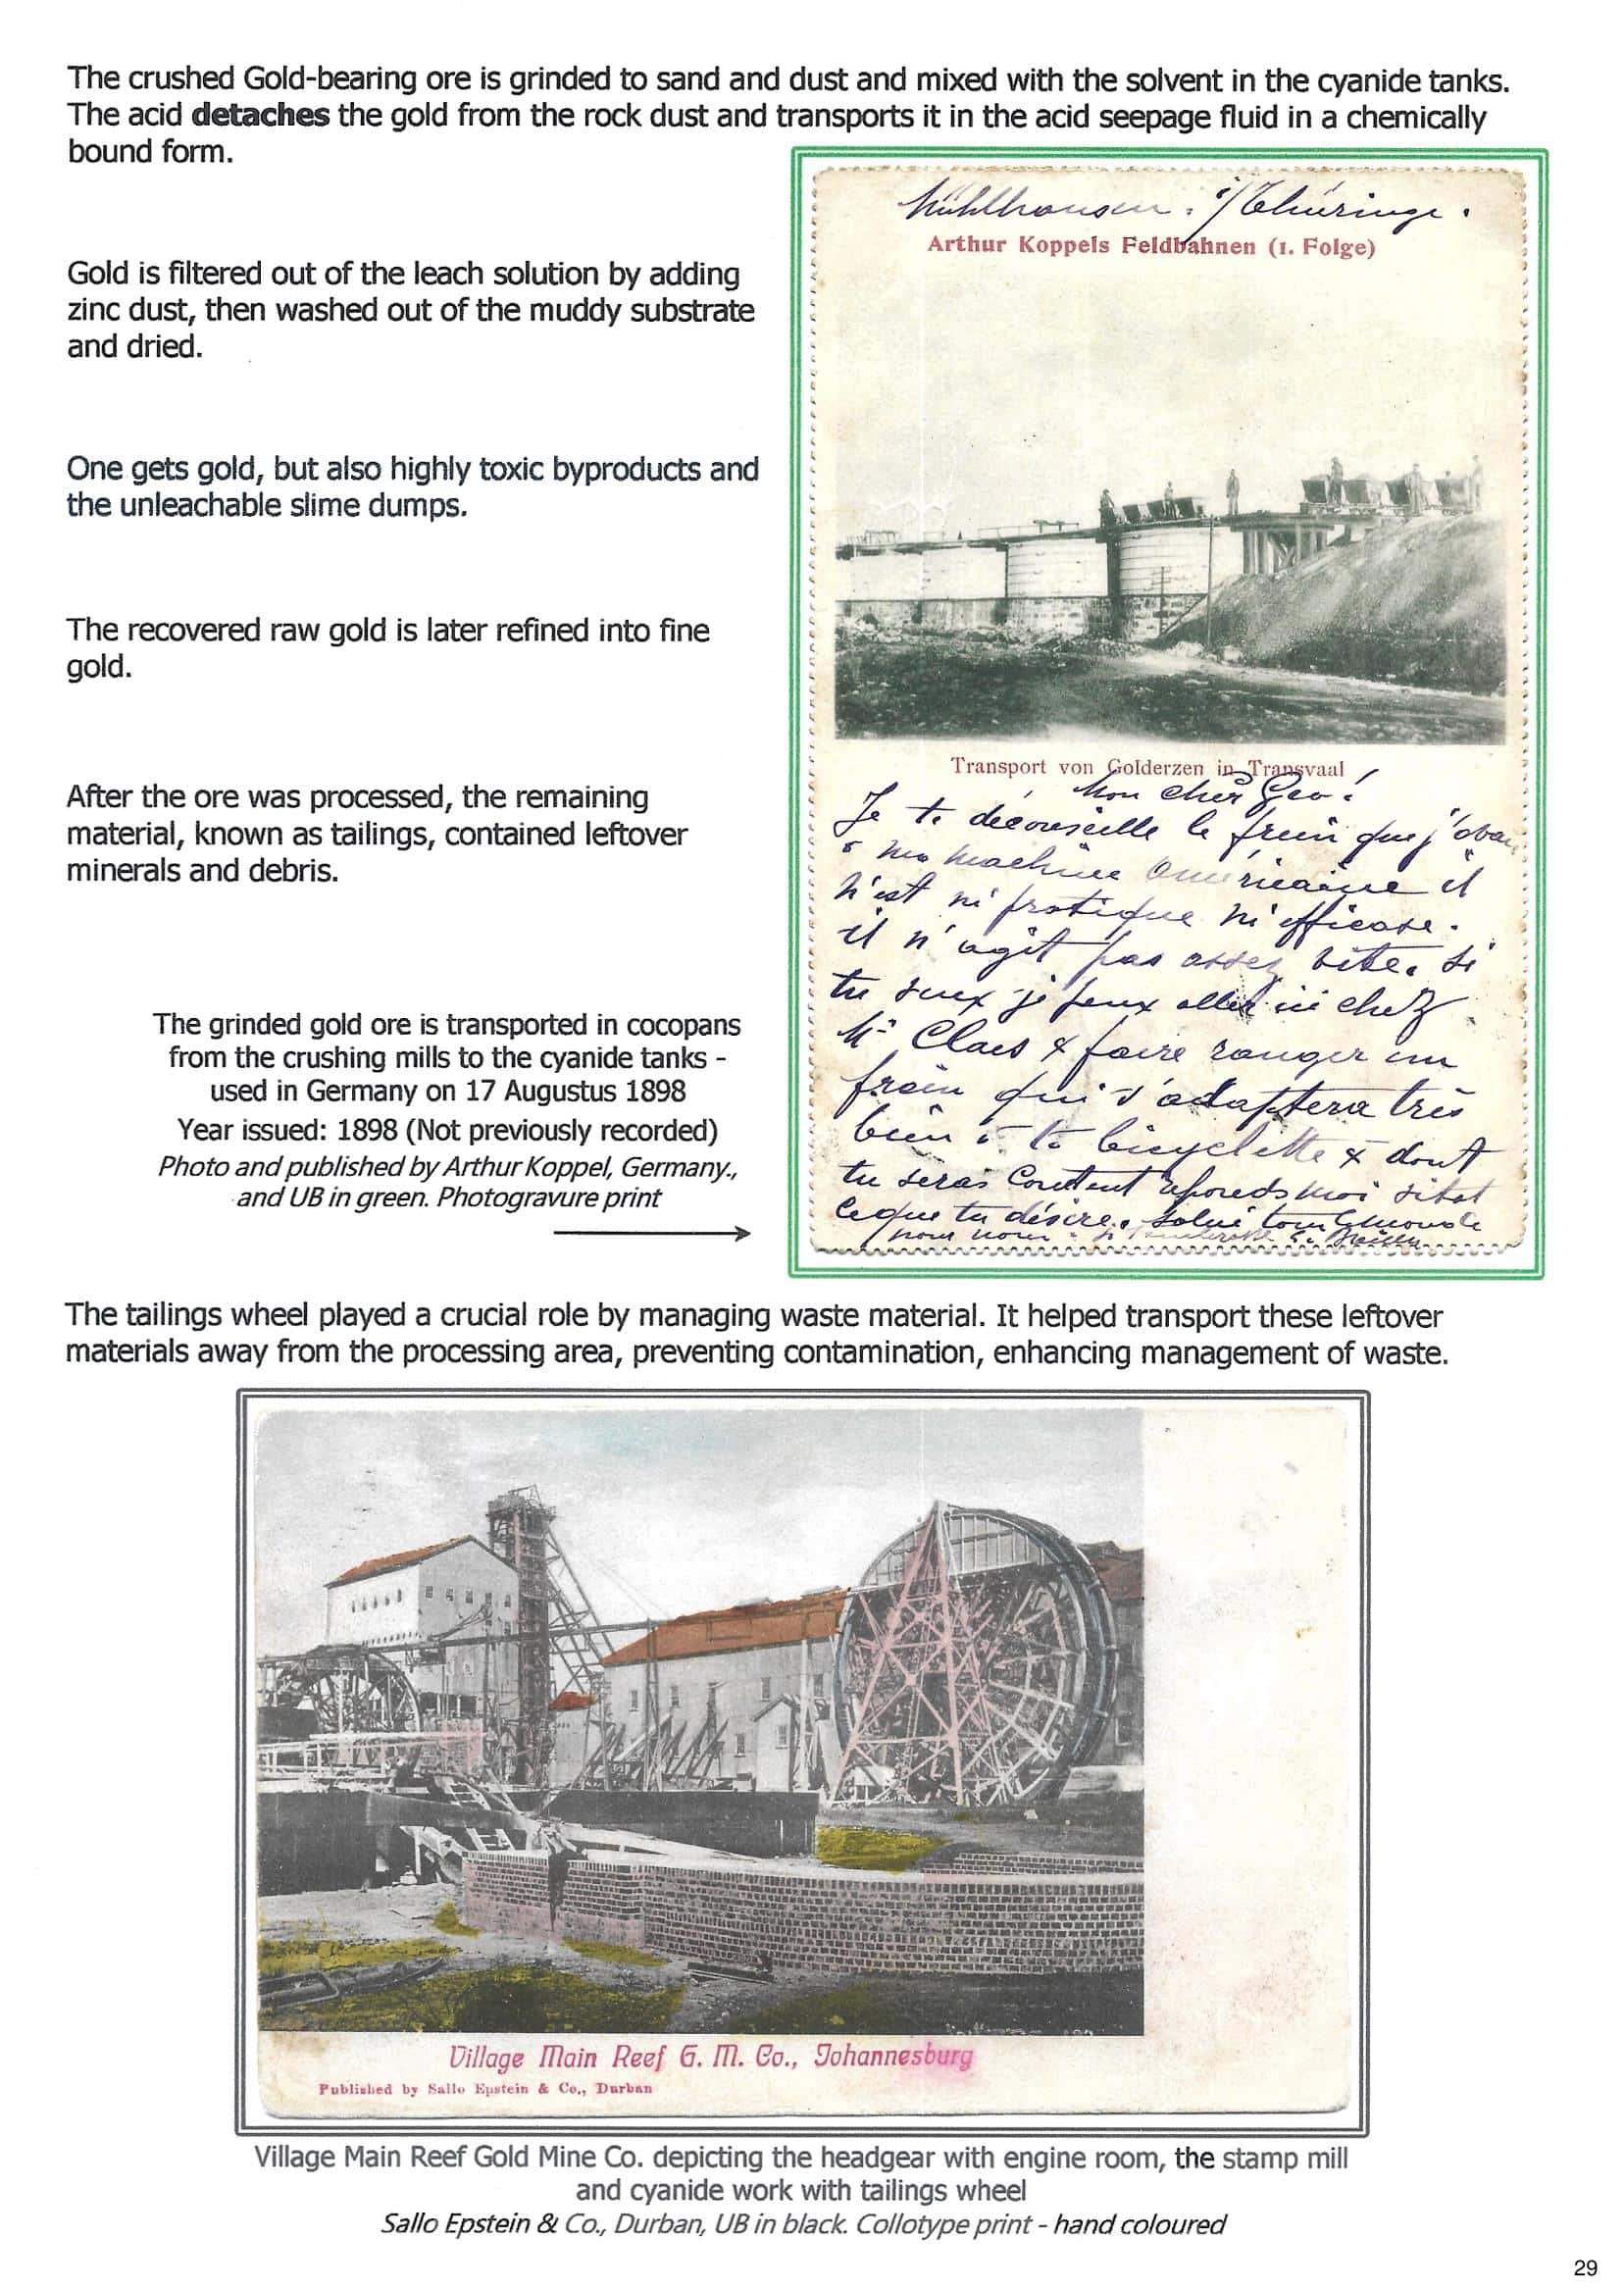 The crushed Gold-bearing ore is grinded to sand and dust and mixed with the solvent in the cyanide tanks.
The acid detaches the gold from the rock dust and transports it in the acid seepage fluid in a chemically
bound form.
Gold is filtered out of the leach solution by adding
zinc dust, then washed out of the muddy substrate
and dried.
One gets gold, but also highly toxic byproducts and
the unleachable slime dumps.
The recovered raw gold is later refined into fine
gold.
After the ore was processed, the remaining
material, known as tailings, contained leftover
minerals and debris.
The grinded gold ore is transported in cocopans
from the crushing mills to the cyanide tanks -
used in Germany on 17 Augustus 1898
Year issued: 1898 (Not previously recorded)
Photo and published by Arthur Koppel, Germany.,
and UB in green. Photogravure print
Mühlhausen i/Thüringe.
Arthur Koppels Feldbahnen (1. Folge)
Transport von Golderzen in Transvaal
Mon cher Geo!
Je te déconseille le frein que j'avai
à ma machine américaine il
n'est ni pratique ni efficace.
il n'agit pas assez vite. Si
tu veux je peux aller ici chez
Mr Claes & faire ranger un
frein qui s'adaptera très
bien à ta bicyclette & dont
tu seras content réponds moi sitot
ce que tu désire. Salue tout le monde
pour nous
The tailings wheel played a crucial role by managing waste material. It helped transport these leftover
materials away from the processing area, preventing contamination, enhancing management of waste.
Village Main Reef G. M. Co., Johannesburg
Published by Sallo Epstein & Co., Durban
Village Main Reef Gold Mine Co. depicting the headgear with engine room, the stamp mill
and cyanide work with tailings wheel
Sallo Epstein & Co., Durban, UB in black. Collotype print - hand coloured
29